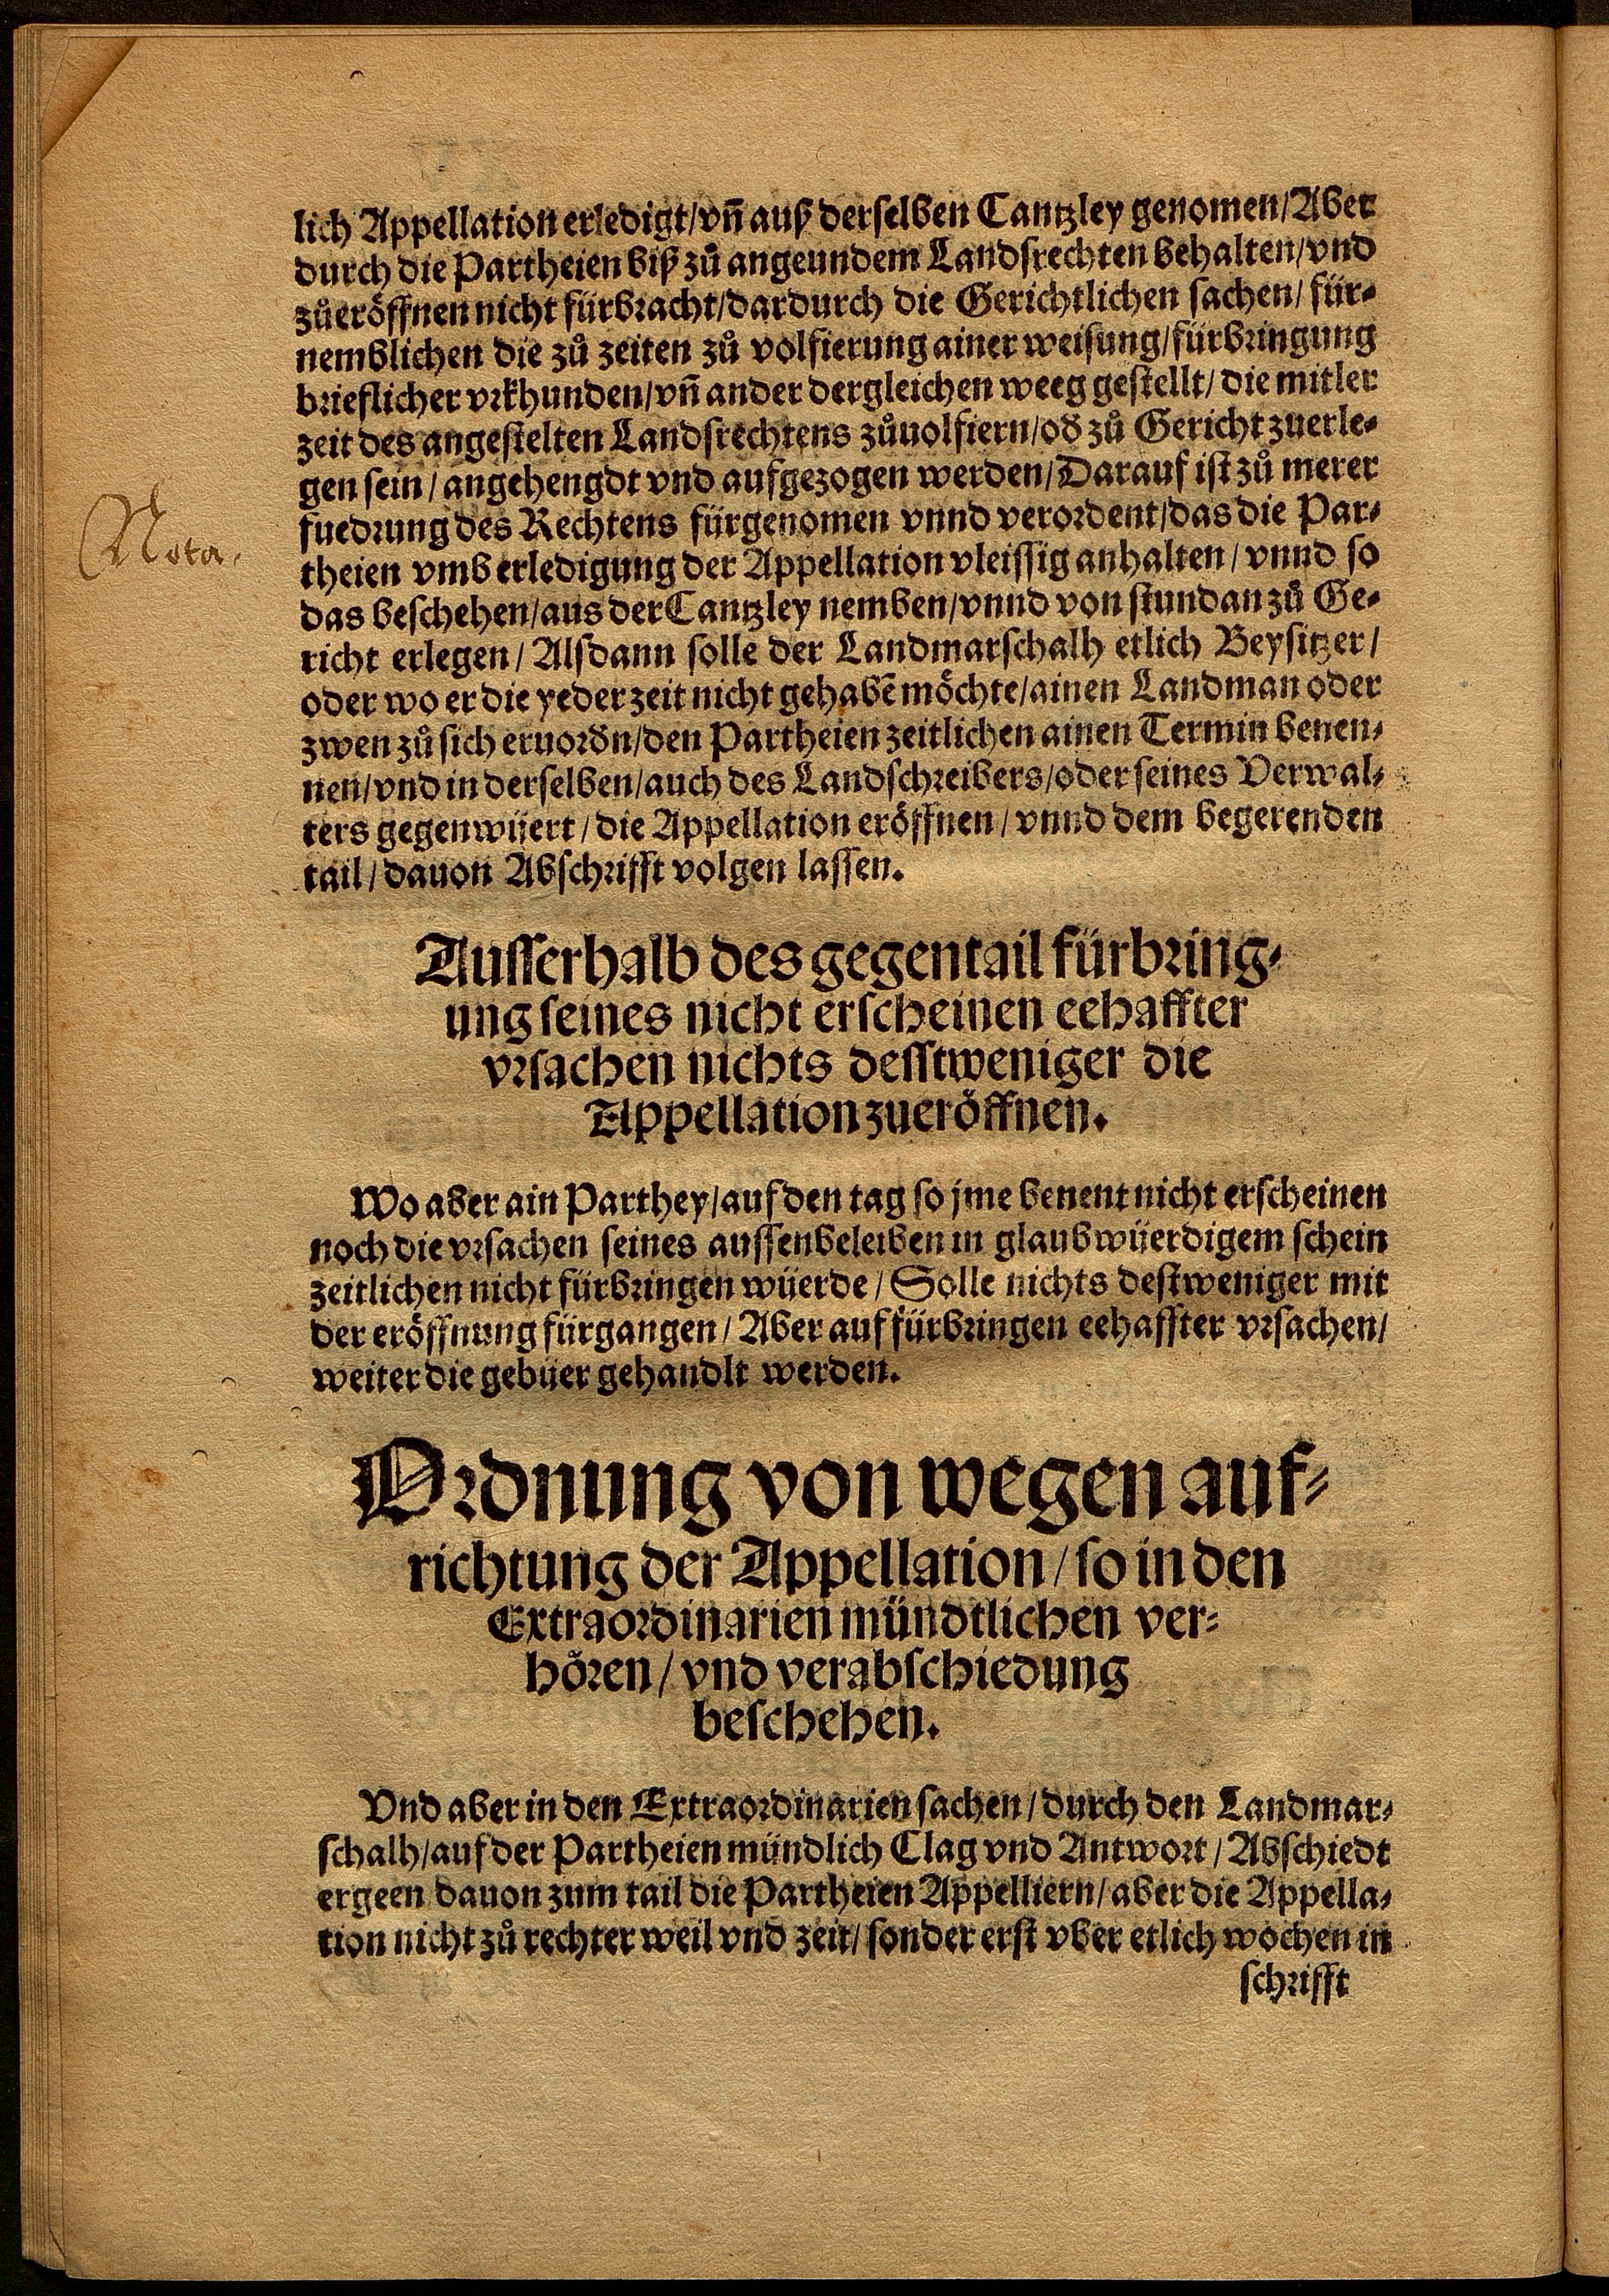 lich Appellation erledigt/vn̄ auß derselben Cantzley genomen/Aber
durch die Partheien biß zů angeundem Landsrechten behalten/vnd
zůeröffnen nicht fürbracht/dardurch die Gerichtlichen sachen/für-
nemblichen die zů zeiten zů volfierung ainer weisung/fürbringung
brieflicher vrkhunden/vn̄ ander dergleichen weeg gestellt/die mitler
zeit des angestelten Landsrechtens zůuolfiern/od̄ zů Gericht zuerle-
gen sein/angehengdt vnd aufgezogen werden/Darauf ist zů merer
fuedrung des Rechtens fürgenomen vnnd verordent/das die Par-
Nota.
theien vmb erledigung der Appellation vleissig anhalten/vnnd so
das beschehen/aus der Cantzley nemben/vnnd von stundan zů Ge-
richt erlegen/Alsdann solle der Landmarschalh etlich Beysitzer/
oder wo er die yeder zeit nicht gehabē möchte/ainen Landman oder
zwen zů sich eruord̄n/den Partheien zeitlichen ainen Termin benen-
nen/vnd in derselben/auch des Landschreibers/oder seines Verwal-
ters gegenwüert/die Appellation eröffnen/vnnd dem begerenden
tail/dauon Abschrifft volgen lassen.
Ausserhalb des gegentail fürbring-
ung seines nicht erscheinen eehaffter
vrsachen nichts desstweniger die
Appellation zueröffnen.
Wo aber ain Parthey/auf den tag so jme benent nicht erscheinen
noch die vrsachen seines aussenbeleiben in glaubwüerdigem schein
zeitlichen nicht fürbringen wüerde/Solle nichts destweniger mit
der eröffnung fürgangen/Aber auf fürbringen eehaffter vrsachen/
weiter die gebüer gehandlt werden.
Ordnung von wegen auf-
richtung der Appellation/so in den
Extraordinarien mündtlichen ver-
hören/vnd verabschiedung
beschehen.
Vnd aber in den Extraordinarien sachen/durch den Landmar-
schalh/auf der Partheien mündlich Clag vnd Antwort/Abschiedt
ergeen dauon zum tail die Partheien Appelliern/aber die Appella-
tion nicht zů rechter weil vnd zeit/sonder erst vber etlich wochen in
schrifft